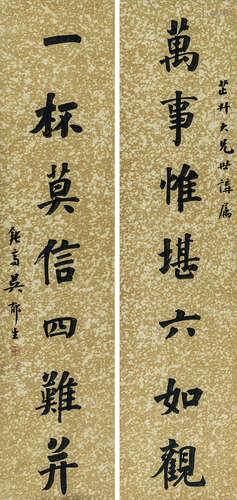 芷升大兄世講屬
萬事惟堪六如觀
一杯莫信四難并
鈍叟吳郁生